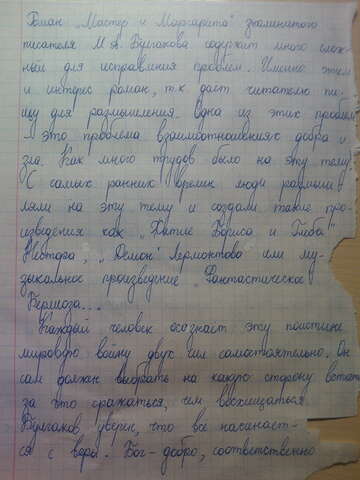 Роман „Мастер и Маргарита" знаменитого
писателя М.А. Булгакова содержит много слож-
ных для исправления проблем. Именно этим
и интерес роман, т.к. даст читателю пи-
щу для размышления. Одна из этих проблем
– это проблема взаимоотношениях добра и
зла. Как много трудов было на эту тему.
С самых ранних времён люди размыш-
ляли на эту тему и создали такие про-
изведения как „Житие Бориса и Глеба"
Нестора, „Демон" Лермонтова или му-
зыкальное произведение „Фантастическое
Берлиоза...
Каждый человек осознаёт эту поистине
мировую войну двух сил самостоятельно. Он
сам должен выбрать на какую сторону встать
за что сражаться, чем восхищаться.
Булгаков уверен, что все начинает-
ся с веры. Бог – добро, соответственно